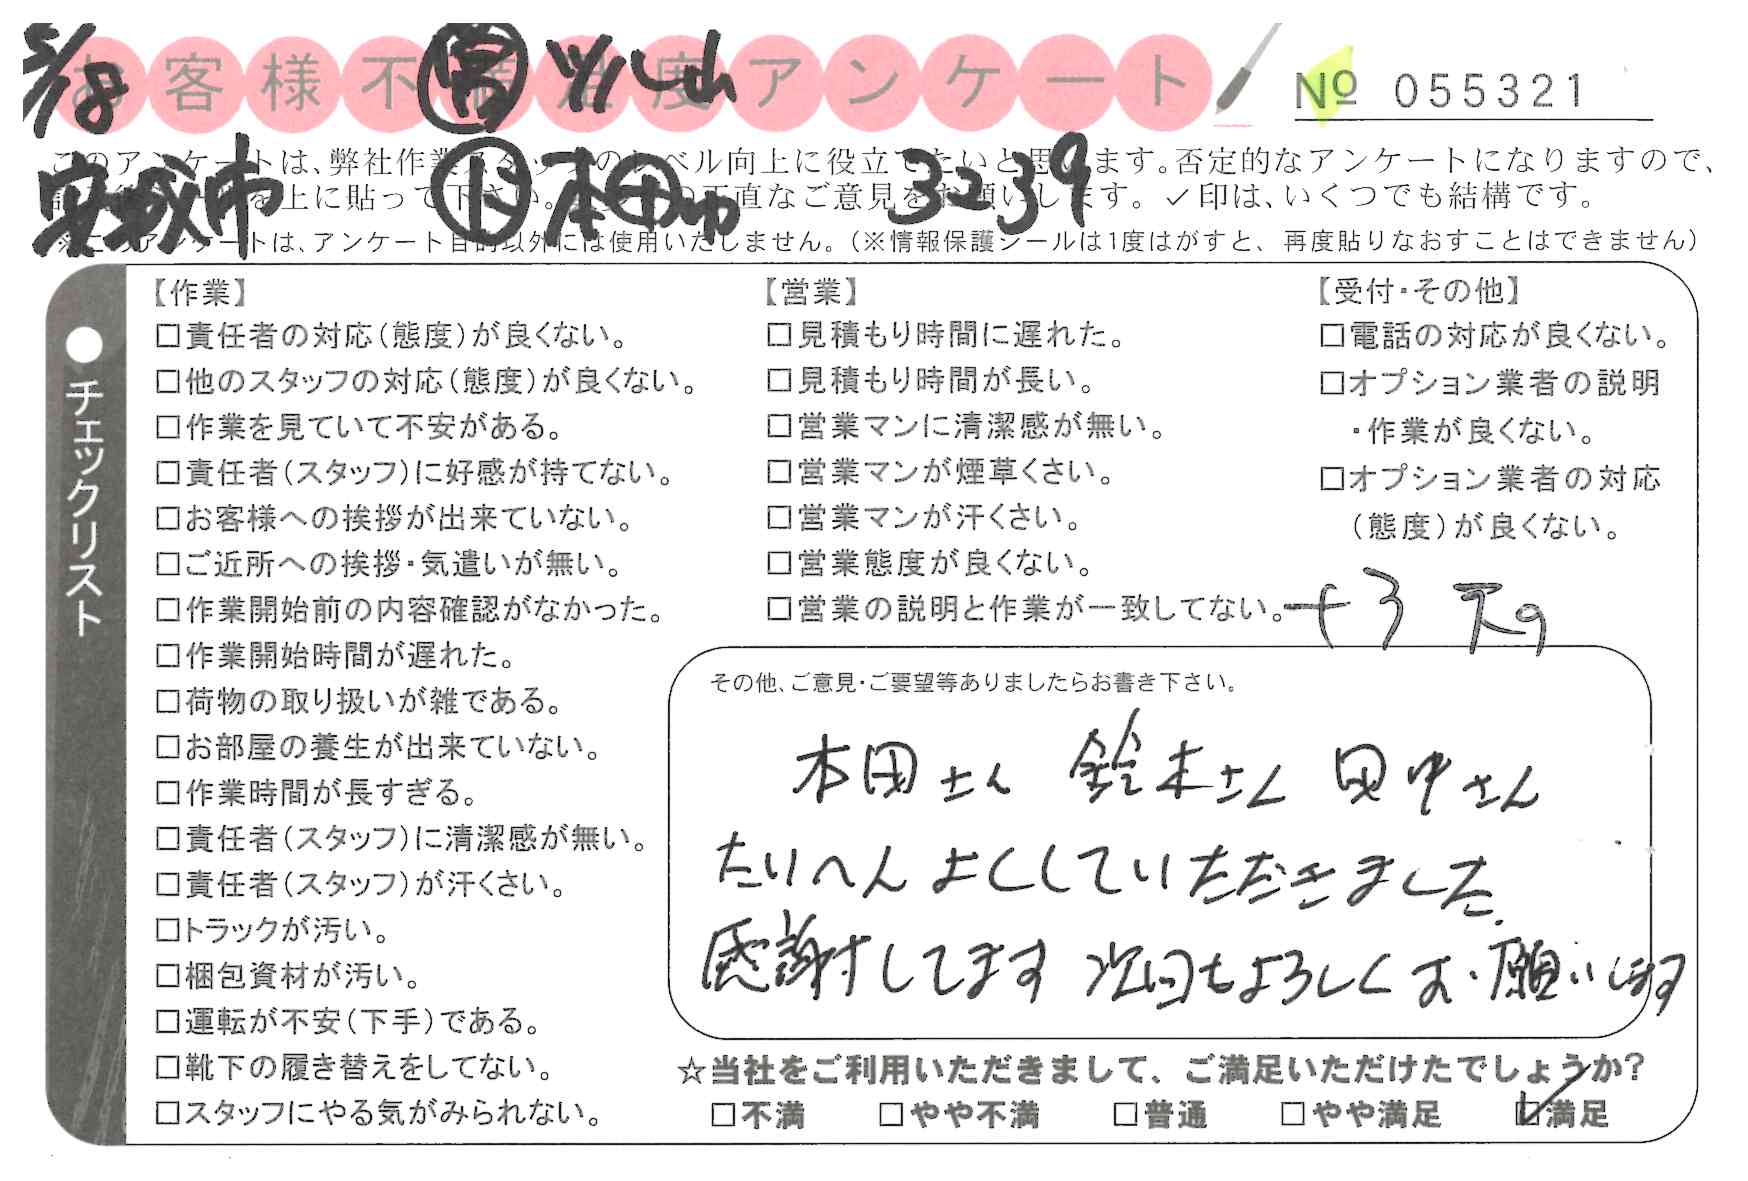 5/18
お客様不満足度アンケート
№ 055321
このアンケートは、弊社作業スタッフのレベル向上に役立てたいと思います。否定的なアンケートになりますので、
安城市
本田
3239
上に貼って下さい。
正直なご意見をお願いします。✓印は、いくつでも結構です。
※このアンケートは、アンケート目的以外には使用いたしません。(※情報保護シールは1度はがすと、再度貼りなおすことはできません)
●チェックリスト
【作業】
□責任者の対応(態度)が良くない。
□他のスタッフの対応(態度)が良くない。
□作業を見ていて不安がある。
□責任者(スタッフ)に好感が持てない。
□お客様への挨拶が出来ていない。
□ご近所への挨拶・気遣いが無い。
□作業開始前の内容確認がなかった。
□作業開始時間が遅れた。
□荷物の取り扱いが雑である。
□お部屋の養生が出来ていない。
□作業時間が長すぎる。
□責任者(スタッフ)に清潔感が無い。
□責任者(スタッフ)が汗くさい。
□トラックが汚い。
□梱包資材が汚い。
□運転が不安(下手)である。
□靴下の履き替えをしてない。
□スタッフにやる気がみられない。
【営業】
□見積もり時間に遅れた。
□見積もり時間が長い。
□営業マンに清潔感が無い。
□営業マンが煙草くさい。
□営業マンが汗くさい。
□営業態度が良くない。
□営業の説明と作業が一致してない。
【受付・その他】
□電話の対応が良くない。
□オプション業者の説明
・作業が良くない。
□オプション業者の対応
(態度)が良くない。
その他、ご意見・ご要望等ありましたらお書き下さい。
本田さん 鈴木さん 田中さん
たいへんよくしていただきました
感謝してます 次回もよろしくお願いします
☆当社をご利用いただきまして、ご満足いただけたでしょうか?
□不満 □やや不満 □普通 □やや満足 ☑満足